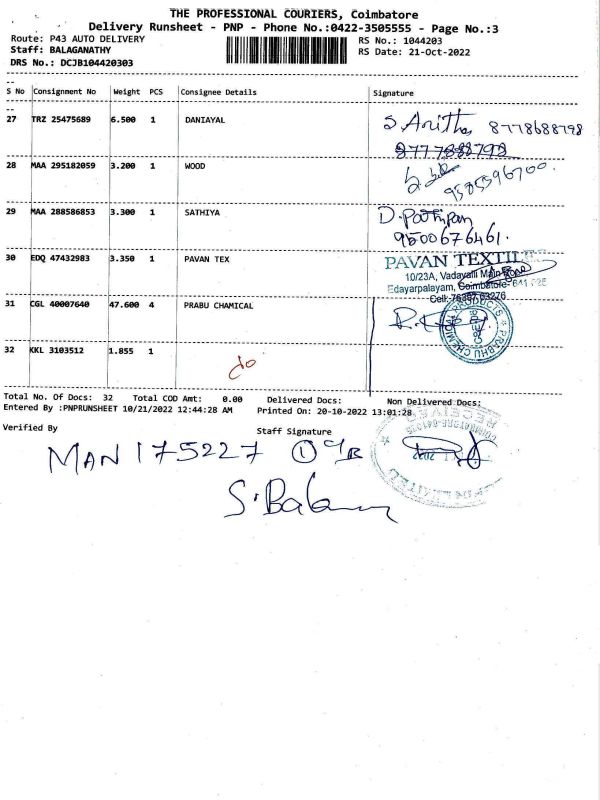 THE PROFESSIONAL COURIERS, Coimbatore
Delivery Runsheet - PNP - Phone No.:0422-3505555 - Page No.:3
Route: P43 AUTO DELIVERY
RS No.: 1044203
Staff: BALAGANATHY
RS Date: 21-Oct-2022
DRS No.: DCJB104420303
S No Consignment No Weight PCS Consignee Details Signature
27 TRZ 25475689 6.500 1 DANIAYAL S. Anitha 8778688798
28 MAA 295182059 3.200 1 WOOD 9585596700
29 MAA 288586853 3.300 1 SATHIYA D. Pathipan
9500676461.
30 EDQ 47432983 3.350 1 PAVAN TEX PAVAN TEXTILE
10/23A, Vadavalli Main Road
Edayarpalayam, Coimbatore-641 025
Cell:
31 CGL 40007640 47.600 4 PRABU CHAMICAL PRABHU CHEMICAL PRODUCTS
32 KKL 3103512 1.855 1 do
Total No. Of Docs: 32 Total COD Amt: 0.00 Delivered Docs: Non Delivered Docs:
Entered By :PNPRUNSHEET 10/21/2022 12:44:28 AM Printed On: 20-10-2022 13:01:28
RECEIVED
Verified By
Staff Signature
MAN 175227 ①
S. Balan